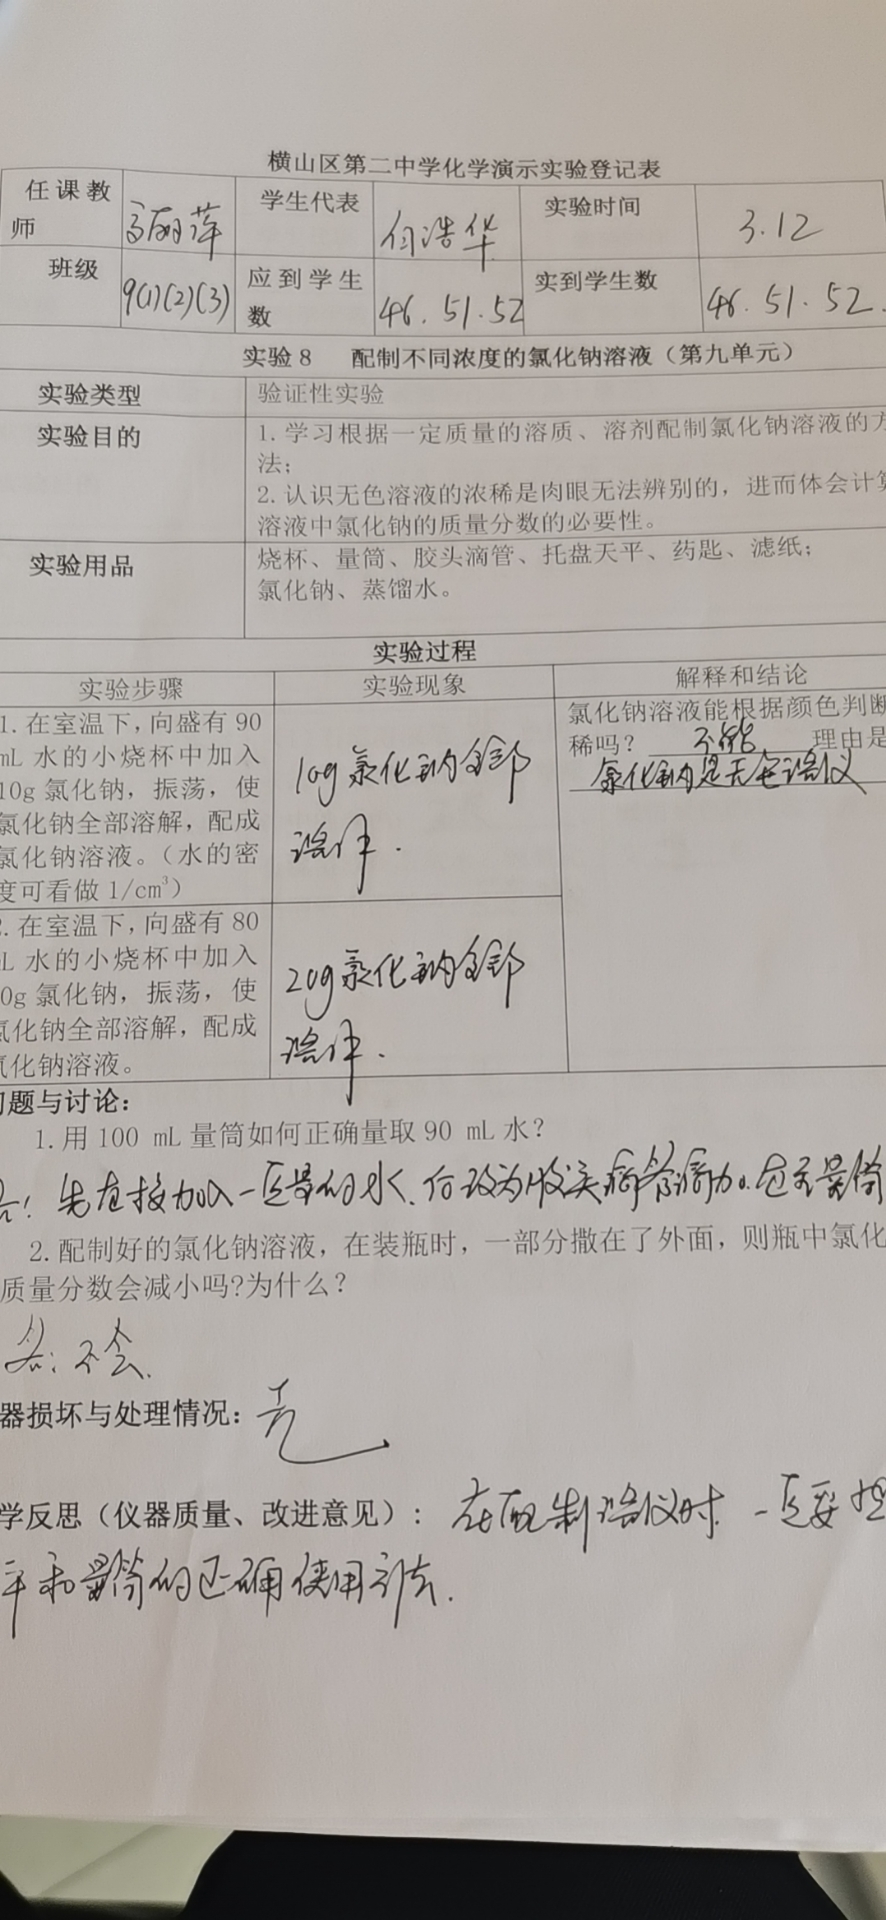 横山区第二中学化学演示实验登记表
任课教师 高丽萍 学生代表 付浩华 实验时间 3.12
班级 9(1)(2)(3) 应到学生数 46.51.52 实到学生数 46.51.52.
实验8 配制不同浓度的氯化钠溶液（第九单元）
实验类型 验证性实验
实验目的 1.学习根据一定质量的溶质、溶剂配制氯化钠溶液的方
法；
2.认识无色溶液的浓稀是肉眼无法辨别的，进而体会计算
溶液中氯化钠的质量分数的必要性。
实验用品 烧杯、量筒、胶头滴管、托盘天平、药匙、滤纸；
氯化钠、蒸馏水。
实验过程
实验步骤 实验现象 解释和结论
1.在室温下，向盛有90
mL水的小烧杯中加入
10g氯化钠，振荡，使
氯化钠全部溶解，配成
氯化钠溶液。（水的密
度可看做1/cm³）
10g氯化钠全部
溶解.
氯化钠溶液能根据颜色判断
稀吗？ 不能 理由是
氯化钠是无色溶液
.在室温下，向盛有80
L水的小烧杯中加入
0g氯化钠，振荡，使
氯化钠全部溶解，配成
氯化钠溶液。
20g氯化钠全部
溶解.
问题与讨论：
1.用100 mL量筒如何正确量取90 mL水？
答：先直接加入一定量的水,后改为胶头滴管滴加.
2.配制好的氯化钠溶液，在装瓶时，一部分撒在了外面，则瓶中氯化
质量分数会减小吗?为什么？
答：不会.
器损坏与处理情况：无
学反思（仪器质量、改进意见）：在配制溶液时,一定要
平和量筒的正确使用方法.